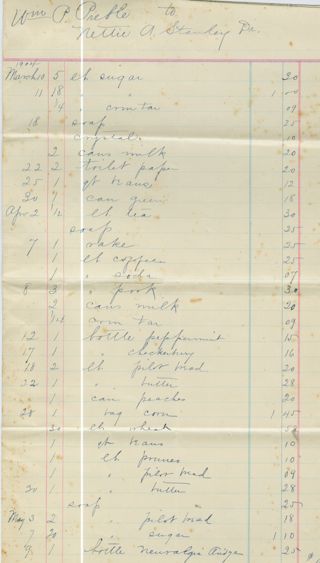 Wm P. Preble to
Nettie A. Stanley Dr.
1904
March 10 5 lb sugar 20
11 18 " " 1 00
1/4 " corn tar 09
18 soap 25
crystal 10
2 cans milk 20
22 2 toilet paper 20
25 1 qt beans 12
30 1 can green 18
Apr 2 1/2 lb tea 30
soap 25
7 1 rake 25
1 lb coffee 25
1 " soda 07
8 3 " pork 30
2 cans milk 20
1/4 corn tar 09
12 1 bottle peppermint 15
17 1 " checkerberry 16
18 2 lb pilot bread 20
22 1 " butter 28
1 can peaches 20
28 1 bag corn 1 45
30 lb wheat
1 qt beans 10
1 lb prunes 10
1 " pilot bread 09
30 1 " butter 28
soap 25
May 3 2 " pilot bread 18
7 20 " sugar 1 10
9 1 bottle Neuralgia 25